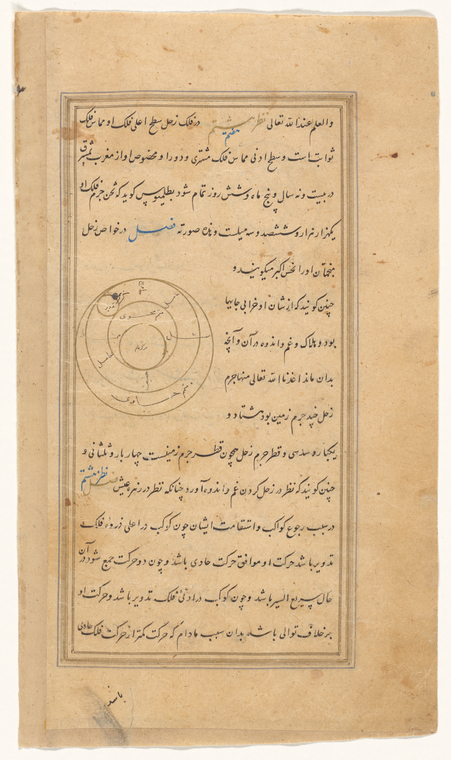 والعلم عند الله تعالی نظر هشتم در فلک زحل سطح اعلی فلک او مماس فلک
هشتم
ثوابت است و سطح ادنی مماس فلک مشتری و دور او مخصوص او از مغرب بمشرق
در بیست و نه سال و پنج ماه و شش روز تمام شود بطلیموس کوید که ثخن جرم فلک او
یکهزار هزار و ششصد و سه میلست و صورته فصل در خواص زحل
منجمان اورا نحس اکبر میکویند و
چنین کویند که از شان او خرابی جایها
بود و هلاک و غم و اندوه در آن و آنچه
بدان ماند اعذنا الله تعالی منها جرم
زحل چند جرم زمین بود هشتاد و
یکبار و سدسی و قطر جرم زحل همچون قطر جرم زمینست چهار بار و ثلثانی و
چنین کویند که نظر در زحل کردن غم و اندوه آورد چنانکه نظر در زهره عیش فصل
نظر هشتم
در سبب رجوع کواکب و استقامت ایشان چون کوکب در اعلی ذروه فلک
تدویر باشد حرکت او موافق حرکت حادی باشد و چون دو حرکت جمع شود در آن
حال سریع السیر باشد و چون کوکب در ادنی فلک تدویر باشد و حرکت او
بر خلاف توالی باشد بدان سبب مادام که حرکت کمتر از حرکت فلک حادی
باشد